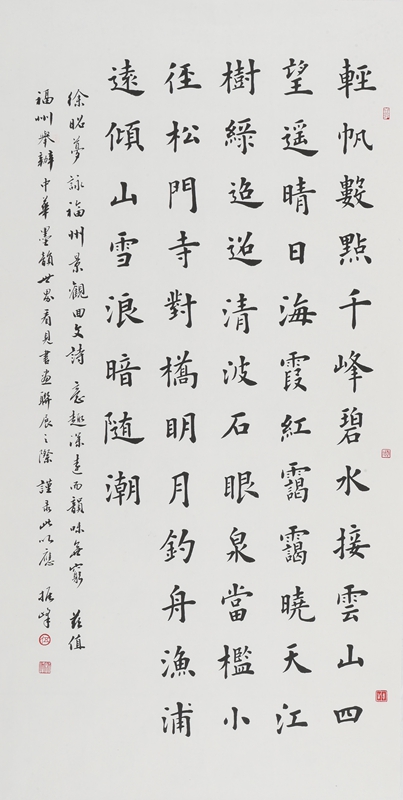 輕帆數點千峰碧水接雲山四
望遥晴日海霞紅靄靄曉天江
樹綠迢迢清波石眼泉當檻小
徑松門寺對橋明月釣舟漁浦
遠傾山雪浪暗随潮
徐昭夢詠福州景觀回文詩意趣深遠而韻味無窮茲值
福州舉辦中華墨韻世界看見書畫聯展之際謹录此以應振峰